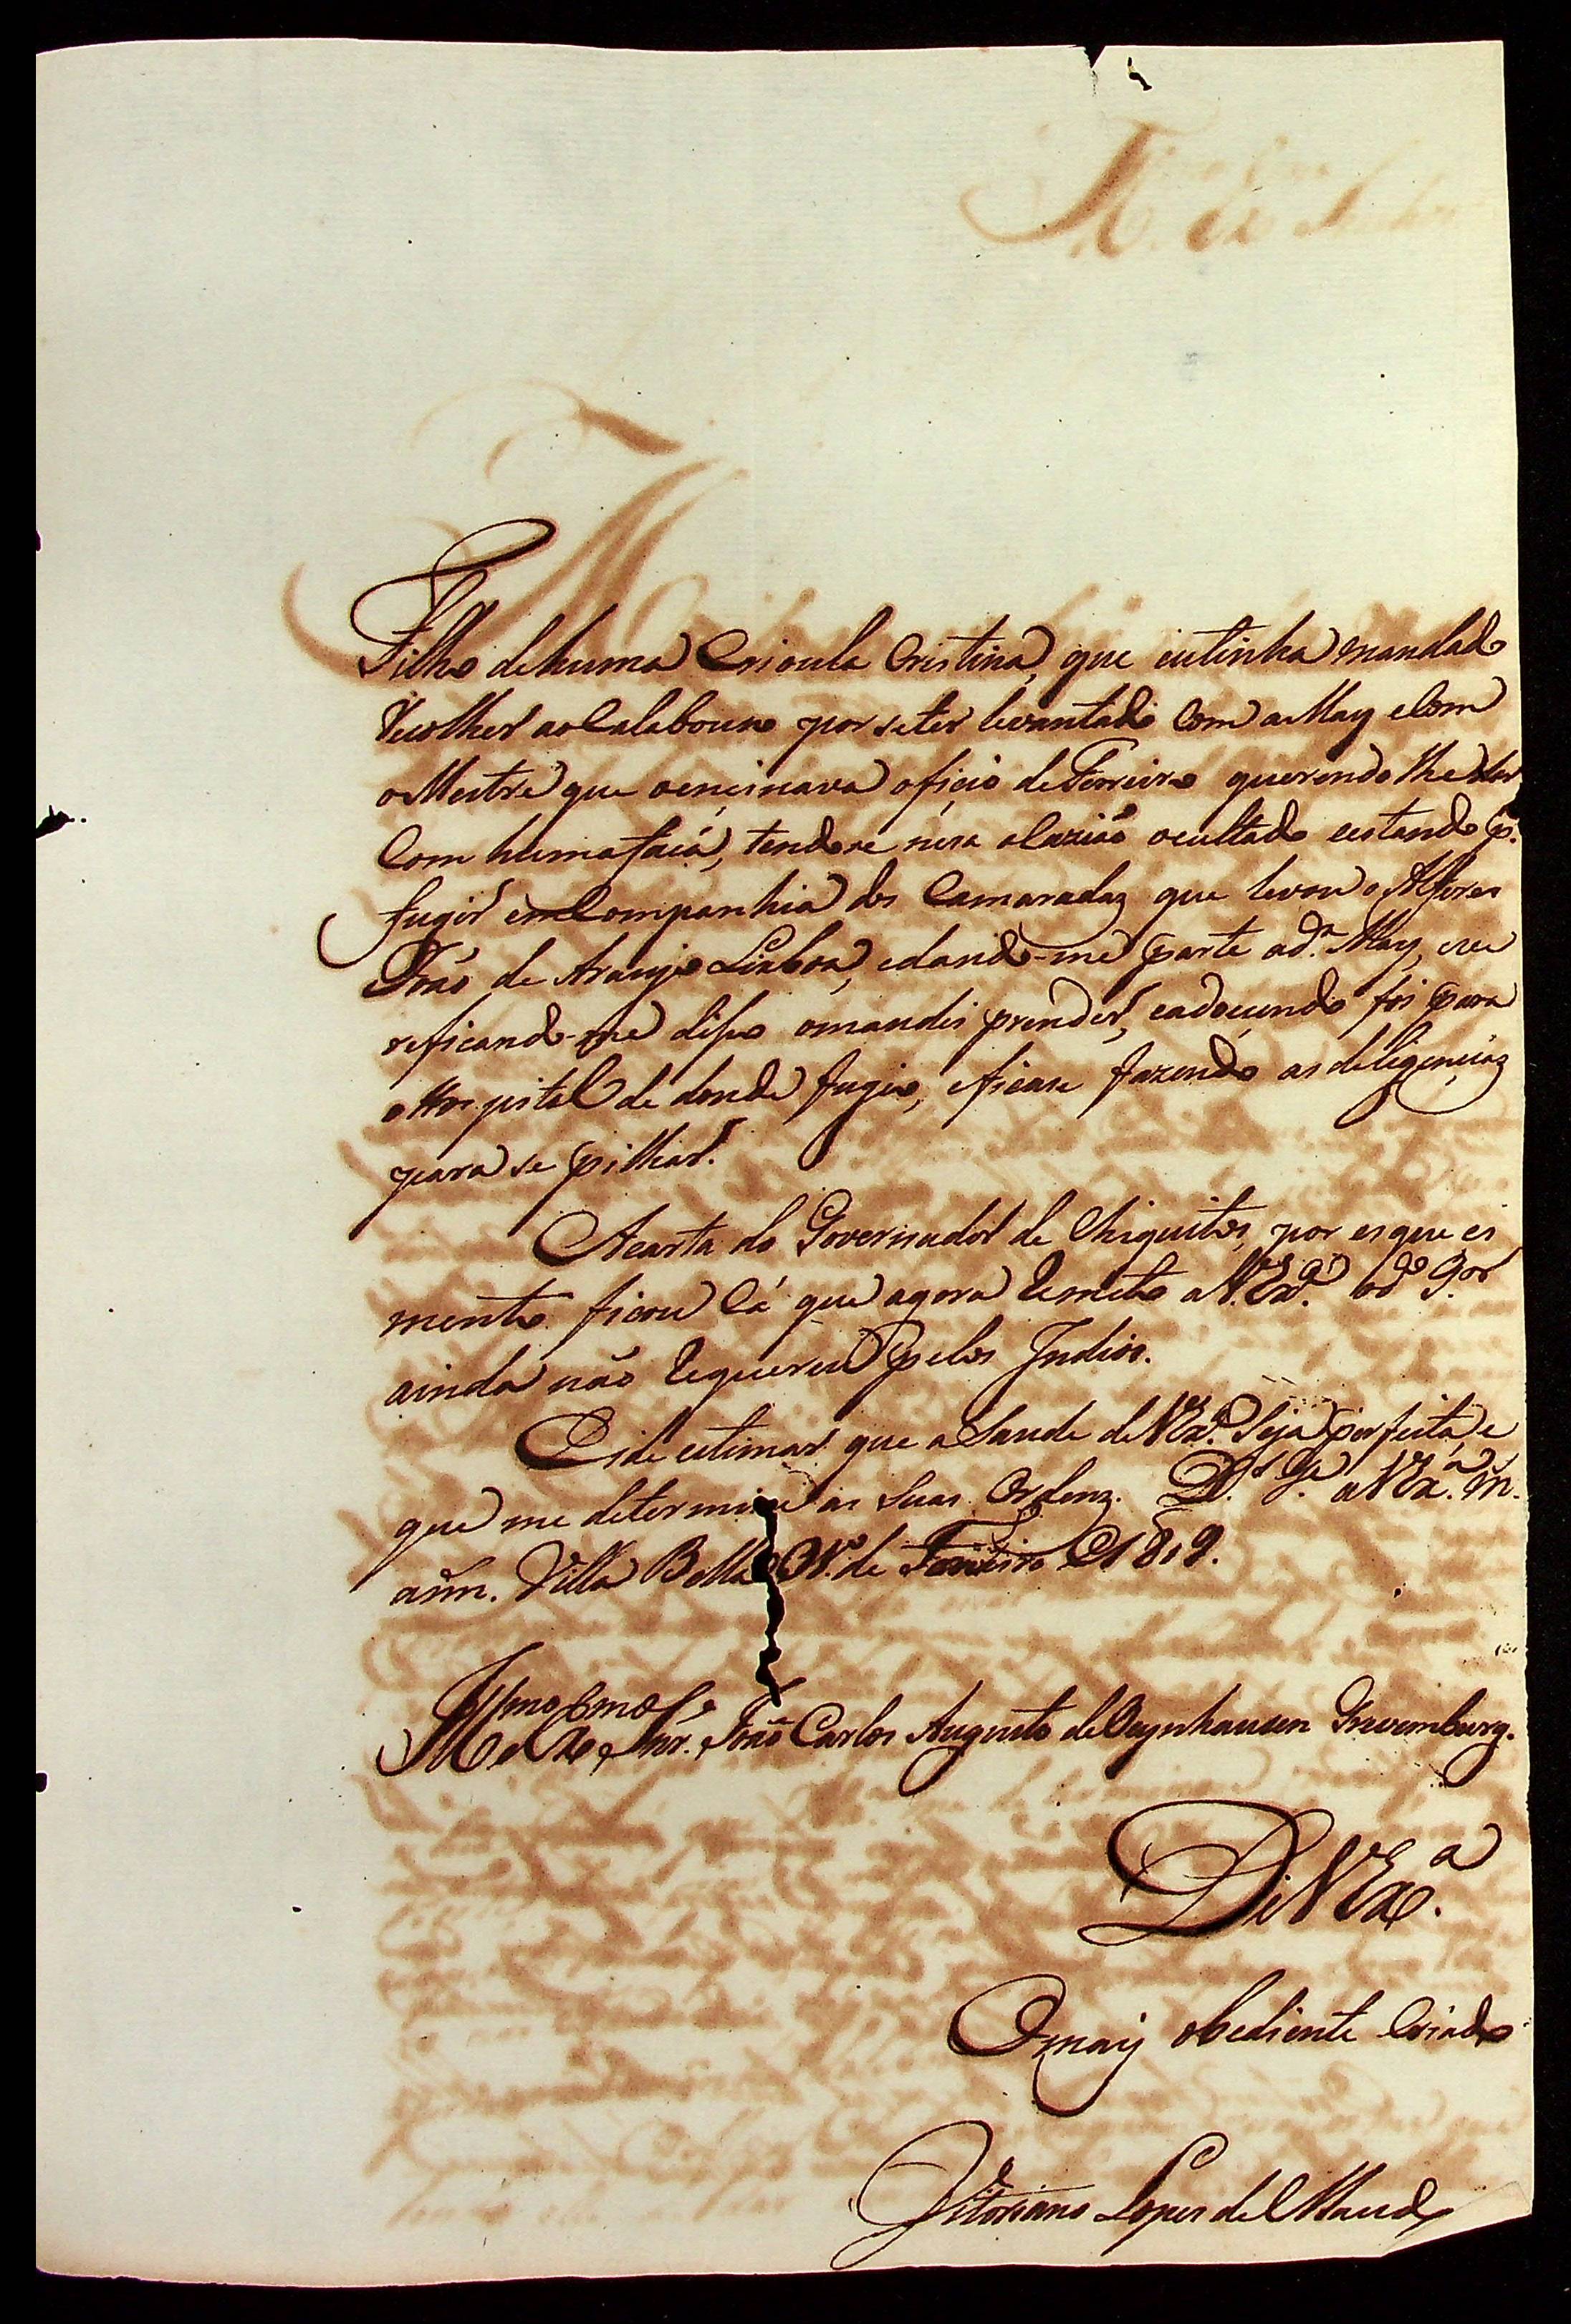 Filho dehuma Crioula Cristina, que eutinha mandado
Recolher aoCalabouso por seter levantado Com aMay eCom
oMestre que oencinava oficio deFerreiro querendo lhe dar
Com humafacá, tendose nesa ocazião ocultado eestando p.
fugir emCompanhia dos Camaradaz que levou o Alferes
João de Araujo Lisboa, edando-me parte ad.ª May, eve
reficando-me diso omandei prender, eadoecendo foi para
oHospital de donde fugio, eficase fazendo asdeligenciaz
para se pilhar.
Acarta do Governador de Chiquitos, por esqueci
mento ficou lá que agora Remeto aVExª. od.º G.or
ainda não Requereu pelos Indios.
Eide estimar que aSaude deVExª. Seja perfeita, e
que me determine as Suas Ordenz. D.s G.e aVExª. m.
ann. Villa Bella de 1819.
Illmo Exmo Snr. João Carlos Augusto deOeynhausen Gravemburg.
DeVExª.
Omaiz obediente Criado
Vitoriano Lopes de Maced